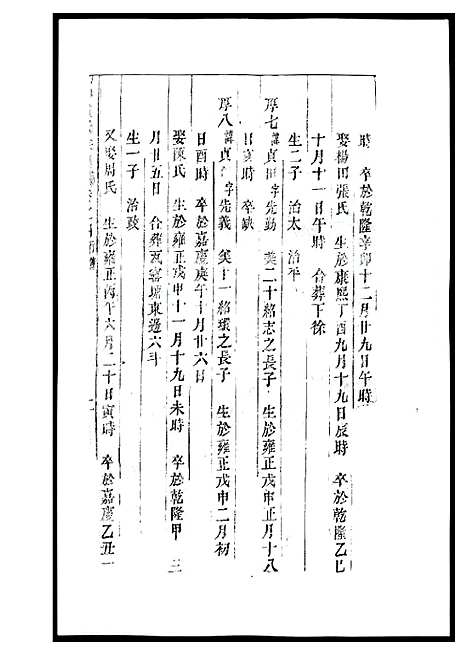 時 卒於乾隆辛卯十二月廿九日午時
娶楊田張氏 生於康熙丁酉九月十九日辰時 卒於乾隆乙巳
十月十一日午時 合葬下徐
生二子 治太 治平
厚七 諱貞田字先勤 美二十紹志之長子 生於雍正戊申正月十八
日亥時 卒缺
厚八 諱貞 字先義 美十一紹環之長子 生於雍正戊申二月初
日酉時 卒於嘉慶庚午十月廿六日
娶陳氏 生於雍正戊申十一月十九日未時 卒於乾隆甲 三
月廿五日 合葬瓦窰塘東邊六斗
生一子 治致
又娶周氏 生於雍正丙午六月二十日寅時 卒於嘉慶乙丑一